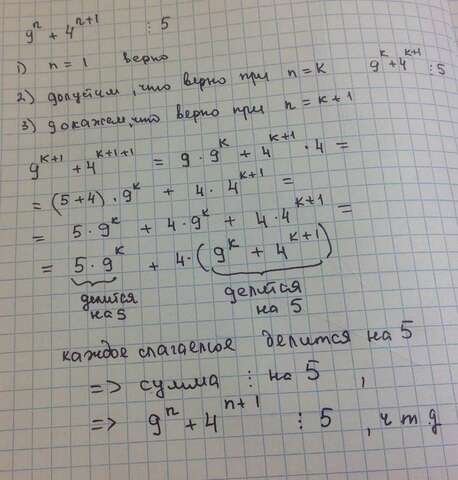 9ⁿ + 4ⁿ⁺¹ ⋮ 5
1) n = 1 верно
2) допустим, что верно при n = k 9ᵏ + 4ᵏ⁺¹ ⋮ 5
3) докажем, что верно при n = k + 1
9ᵏ⁺¹ + 4ᵏ⁺¹⁺¹ = 9 · 9ᵏ + 4ᵏ⁺¹ · 4 =
= (5+4) · 9ᵏ + 4 · 4ᵏ⁺¹ =
= 5 · 9ᵏ + 4 · 9ᵏ + 4 · 4ᵏ⁺¹ =
= 5 · 9ᵏ + 4 · (9ᵏ + 4ᵏ⁺¹)
делится на 5
делится на 5
каждое слагаемое делится на 5
=> сумма ⋮ на 5 ,
=> 9ⁿ + 4ⁿ⁺¹ ⋮ 5 , ч т д